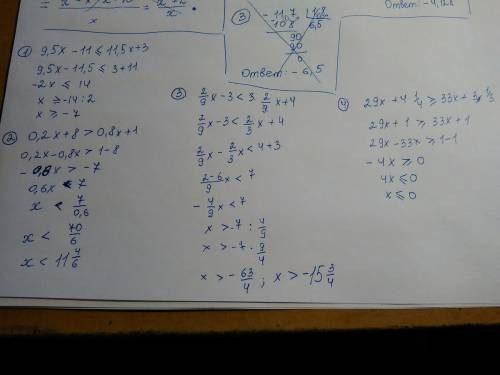 x
= x+2/x.
3) -11,7 | 1,8
10 8 | 6,5
90
90
0
Ответ: - 6,5
Ответ -
① 9,5x - 11 ≤ 11,5x+3
9,5x - 11,5 ≤ 3+11
-2x ≤ 14
x ≥ -14:2
x ≥ -7
② 0,2x+8 > 0,8x+1
0,2x-0,8x > 1-8
- 0,6x > -7
0,6x < 7
x < 7/0,6
x < 70/6
x < 11 4/6
③ 2/9x-3 < 3 2/9x+4
2/9x-3 < 2/3x+4
2/9x - 2/3x < 4+3
2-6/9x < 7
- 4/9x < 7
x > -7 : 4/9
x > -7 · 9/4
x > - 63/4 ; x > -15 3/4
④ 29x+4 1/4 ≥ 33x+3 1/3
29x+1 ≥ 33x+1
29x-33x ≥ 1-1
- 4x ≥ 0
4x ≤ 0
x ≤ 0